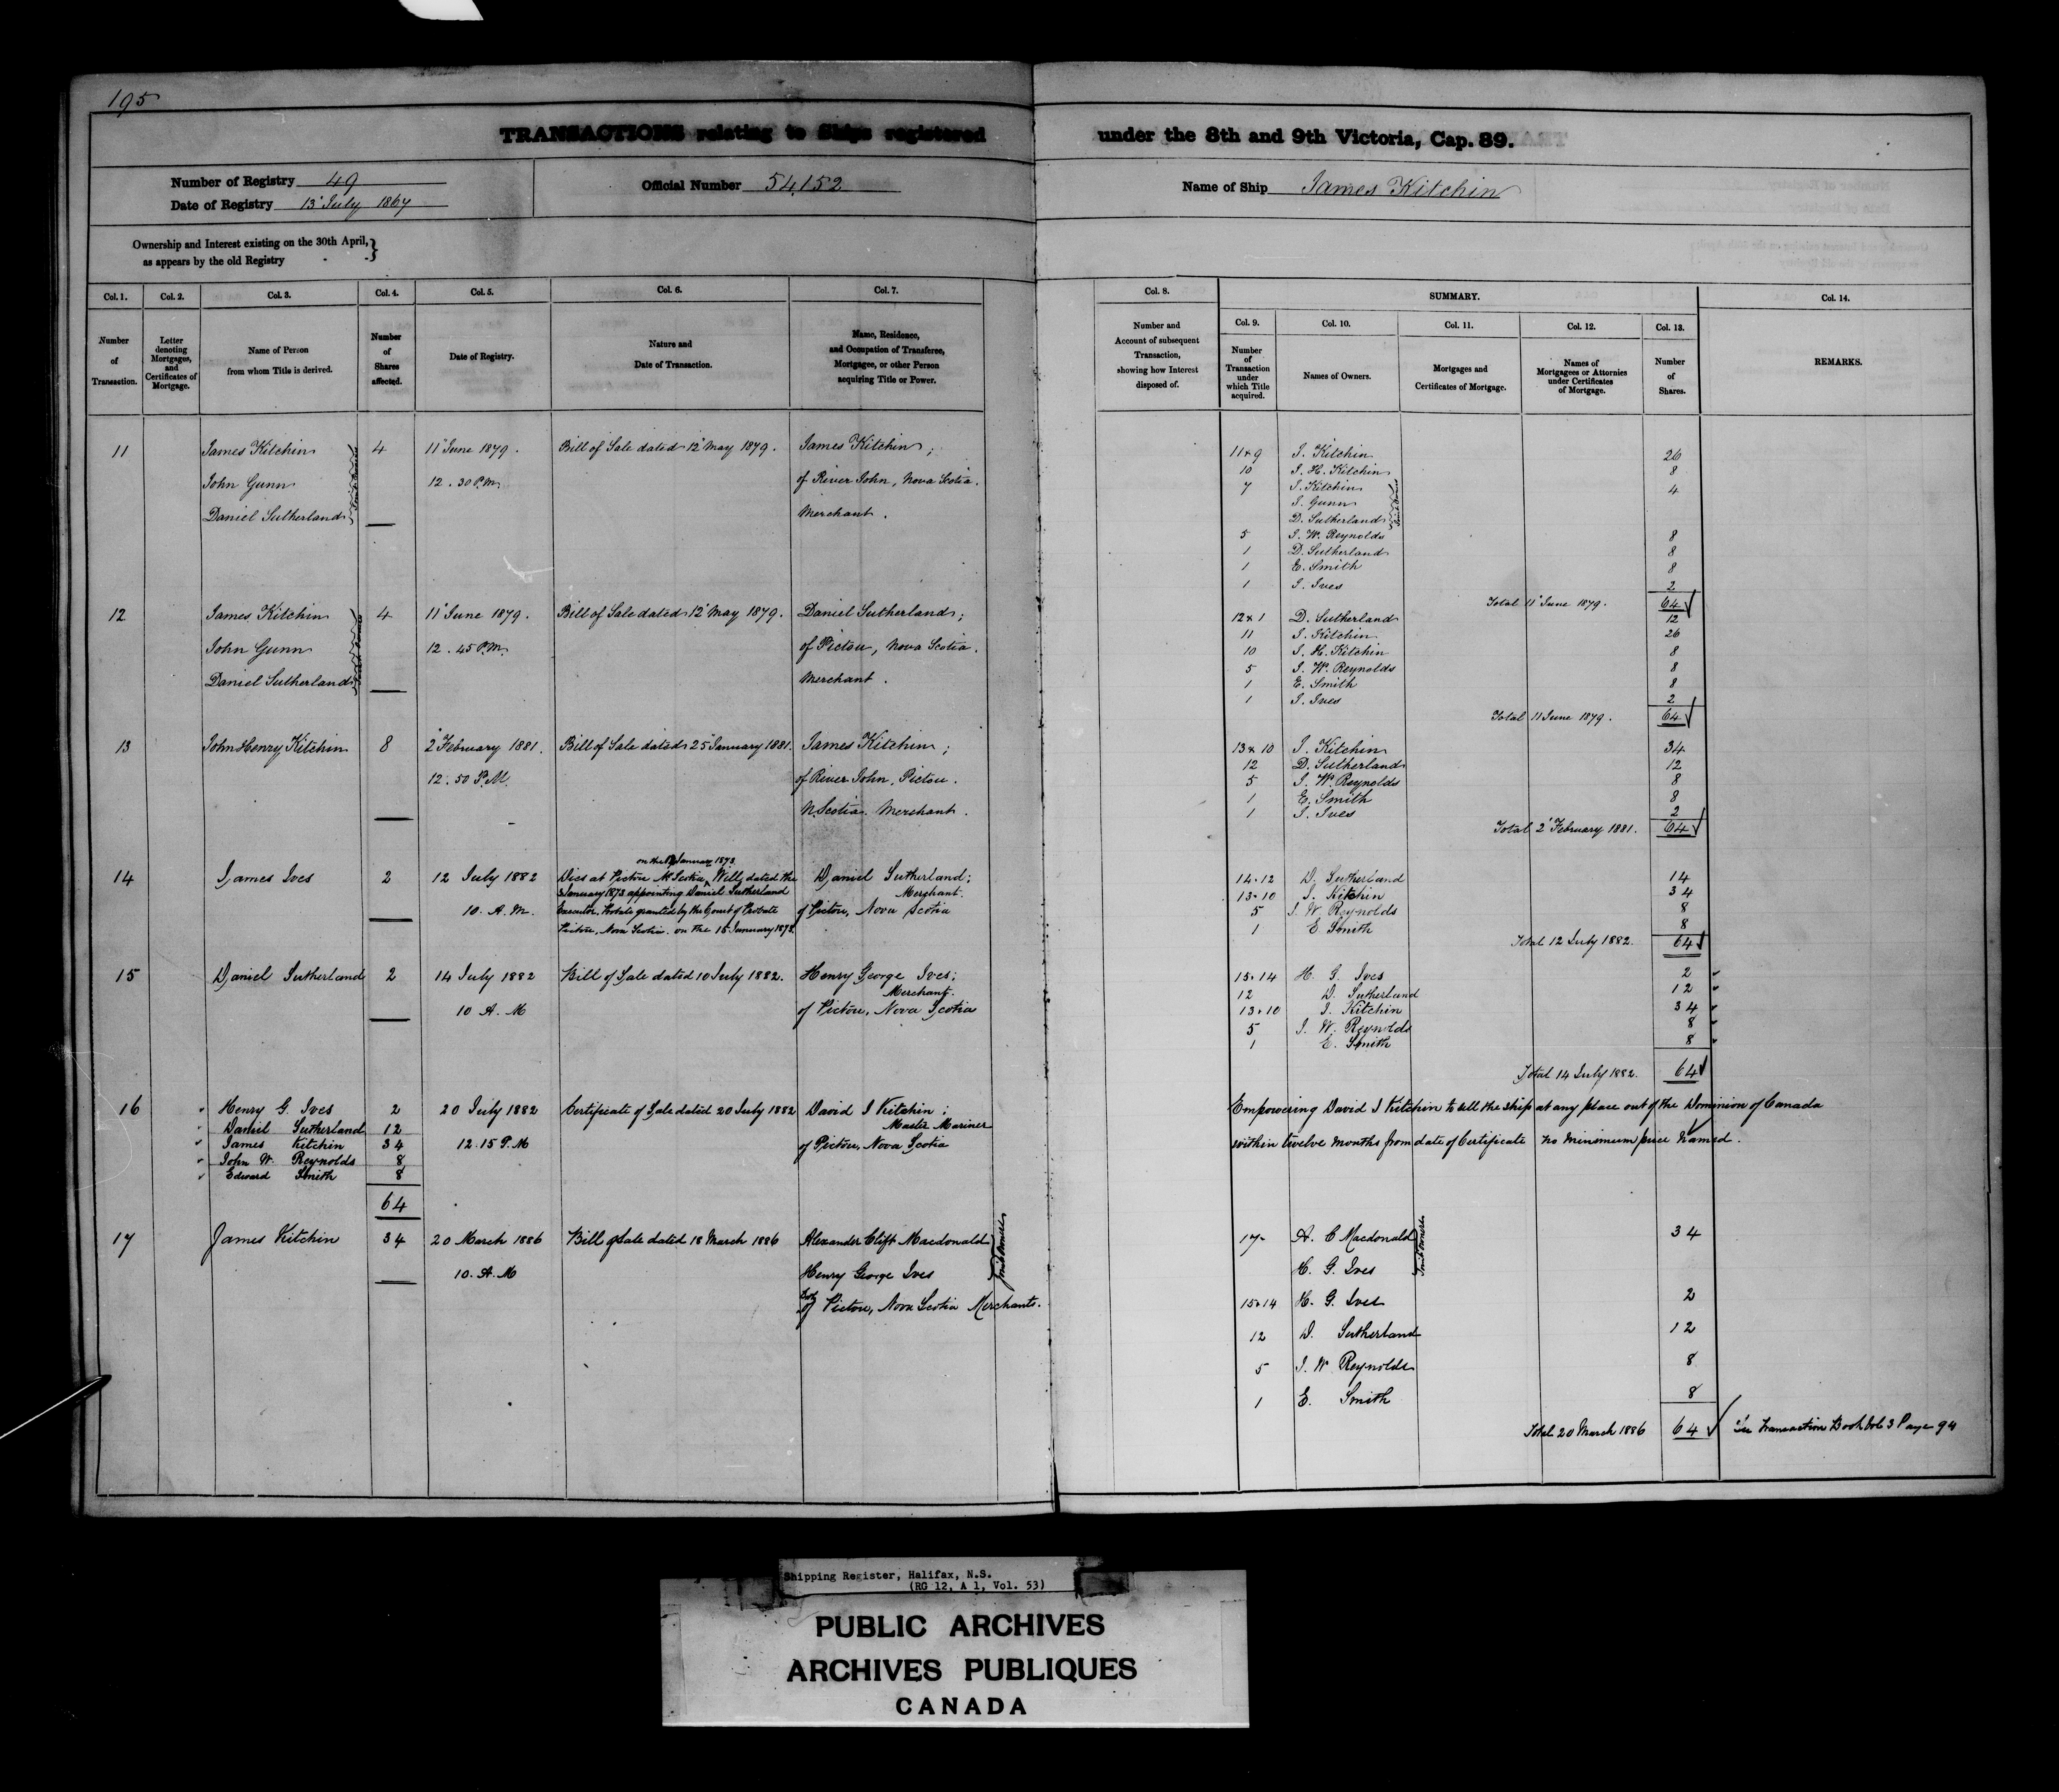 195
TRANSACTIONS relating to Ships registered under the 8th and 9th Victoria, Cap. 89.
Number of Registry 49
Date of Registry 13 July 1867
Official Number 54,152
Name of Ship James Kitchin
Ownership and Interest existing on the 30th April,
as appears by the old Registry
Col. 1. Col. 2. Col. 3. Col. 4. Col. 5. Col. 6. Col. 7.
Number of Transaction.
Letter denoting Mortgages, and Certificates of Mortgage.
Name of Person from whom Title is derived.
Number of Shares affected.
Date of Registry.
Nature and Date of Transaction.
Name, Residence, and Occupation of Transferee, Mortgagee, or other Person acquiring Title or Power.
11 James Kitchin 4 11 June 1879. Bill of Sale dated 12 May 1879. James Kitchin;
John Gunn 12.30 P.M. of River John, Nova Scotia.
Daniel Sutherland Joint Owners Merchant.
12 James Kitchin 4 11 June 1879. Bill of Sale dated 12 May 1879. Daniel Sutherland;
John Gunn 12.45 P.M. of Pictou, Nova Scotia.
Daniel Sutherland Joint Owners Merchant.
13 John Henry Kitchin 8 2 February 1881. Bill of Sale dated 25 January 1881. James Kitchin;
12.50 P.M. of River John, Pictou.
N. Scotia. Merchant.
14 James Ives 2 12 July 1882 Dies at Pictou N. Scotia on the January 1873 Will dated the Daniel Sutherland;
3 January 1873 appointing Daniel Sutherland Merchant.
10. A.M. Executor. Probate granted by the Court of Probate of Pictou, Nova Scotia
Pictou, Nova Scotia. on the 15 January 1873.
15 Daniel Sutherland 2 14 July 1882 Bill of Sale dated 10 July 1882. Henry George Ives;
Merchant.
10 A.M of Pictou, Nova Scotia
16 Henry G. Ives 2 20 July 1882 Certificate of Sale dated 20 July 1882 David J Kitchin;
Daniel Sutherland 12 Master Mariner
James Kitchin 34 12.15 P.M of Pictou, Nova Scotia
John W. Reynolds 8
Edward Smith 8
64
17 James Kitchin 34 20 March 1886 Bill of Sale dated 18 March 1886 Alexander Clift Macdonald
10. A.M Henry George Ives Joint Owners
both of Pictou, Nova Scotia Merchants.
Col. 8. SUMMARY. Col. 14.
Col. 9. Col. 10. Col. 11. Col. 12. Col. 13.
Number and Account of subsequent Transaction, showing how Interest disposed of.
Number of Transaction under which Title acquired.
Names of Owners.
Mortgages and Certificates of Mortgage.
Names of Mortgagees or Attornies under Certificates of Mortgage.
Number of Shares.
REMARKS.
11 & 9 J. Kitchin 26
10 J. H. Kitchin 8
7 J. Kitchin 4
J. Gunn
D. Sutherland Joint Owners
5 J. W. Reynolds 8
1 D. Sutherland 8
1 E. Smith 8
1 J. Ives 2
Total 11 June 1879. 64
12 & 1 D. Sutherland 12
11 J. Kitchin 26
10 J. H. Kitchin 8
5 J. W. Reynolds 8
1 E. Smith 8
1 J. Ives 2
Total 11 June 1879. 64
13 & 10 J. Kitchin 34
12 D. Sutherland 12
5 J. W. Reynolds 8
1 E. Smith 8
1 J. Ives 2
Total 2 February 1881. 64
14.12 D. Sutherland 14
13.10 J. Kitchin 34
5 J. W. Reynolds 8
1 E. Smith 8
Total 12 July 1882. 64
15.14 H. G. Ives 2
12 D. Sutherland 12
13.10 J. Kitchin 34
5 J. W. Reynolds 8
1 E. Smith 8
Total 14 July 1882. 64
Empowering David J Kitchin to sell the ship at any place out of the Dominion of Canada
within twelve months from date of Certificate no minimum price named.
17 A. C Macdonald 34
H. G. Ives Joint Owners
15.14 H. G. Ives 2
12 D. Sutherland 12
5 J. W Reynolds 8
1 E. Smith 8
Total 20 March 1886 64 See Transaction Book Vol 3 Page 94
Shipping Register, Halifax, N.S.
(RG 12, A 1, Vol. 53)
PUBLIC ARCHIVES
ARCHIVES PUBLIQUES
CANADA